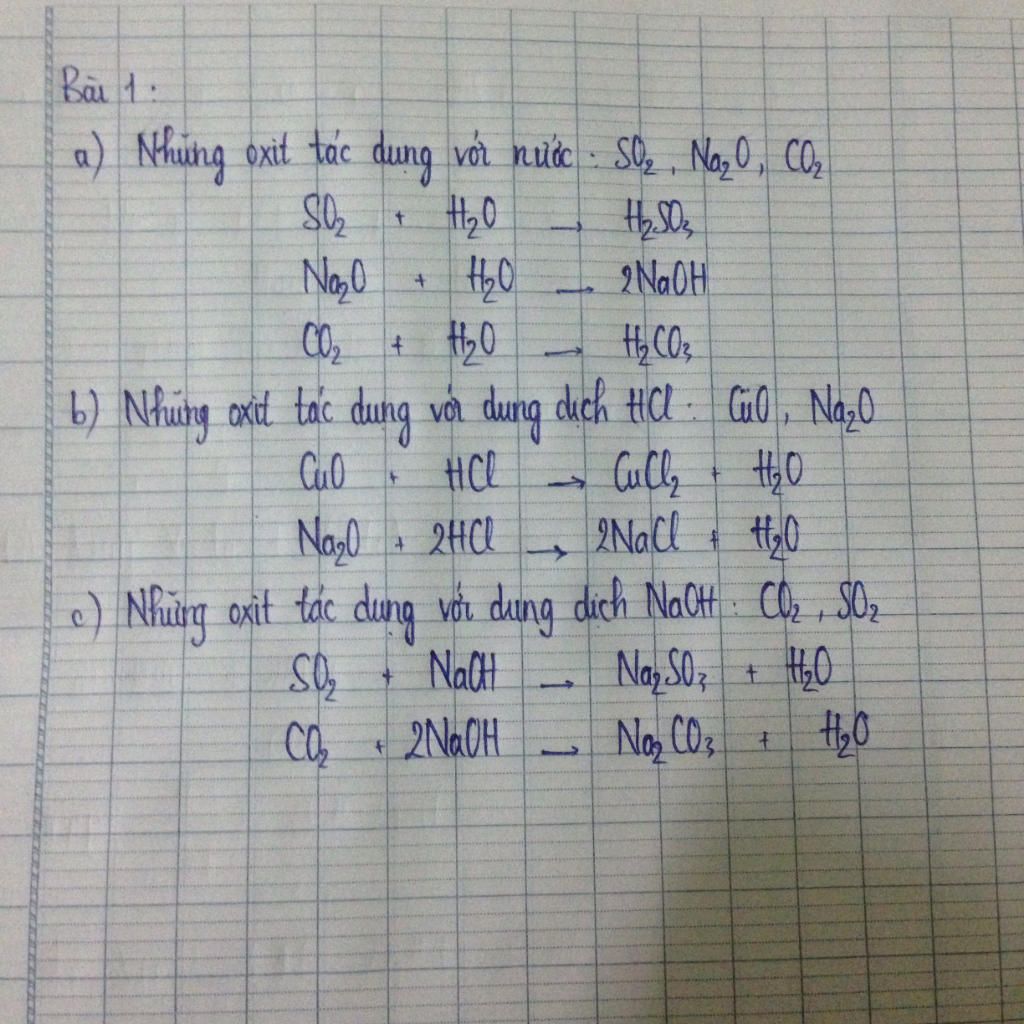 Bài 1:
a) Những oxit tác dụng với nước: SO₂, Na₂O, CO₂
SO₂ + H₂O → H₂SO₃
Na₂O + H₂O → 2NaOH
CO₂ + H₂O → H₂CO₃
b) Những oxit tác dụng với dung dịch HCl: CuO, Na₂O
CuO + HCl → CuCl₂ + H₂O
Na₂O + 2HCl → 2NaCl + H₂O
c) Những oxit tác dụng với dung dịch NaOH: CO₂, SO₂
SO₂ + NaOH → Na₂SO₃ + H₂O
CO₂ + 2NaOH → Na₂CO₃ + H₂O